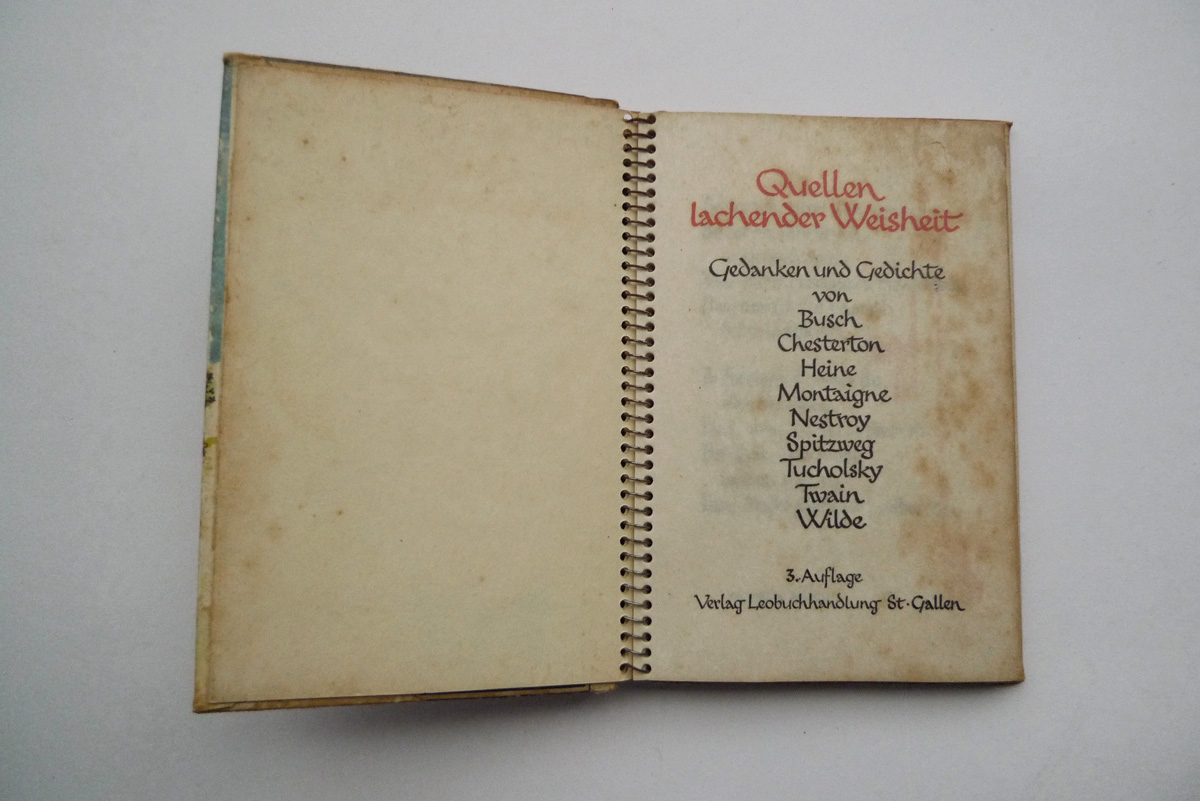 Quellen
lachender Weisheit
Gedanken und Gedichte
von
Busch
Chesterton
Heine
Montaigne
Nestroy
Spitzweg
Tucholsky
Twain
Wilde
3. Auflage
Verlag Leobuchhandlung St. Gallen